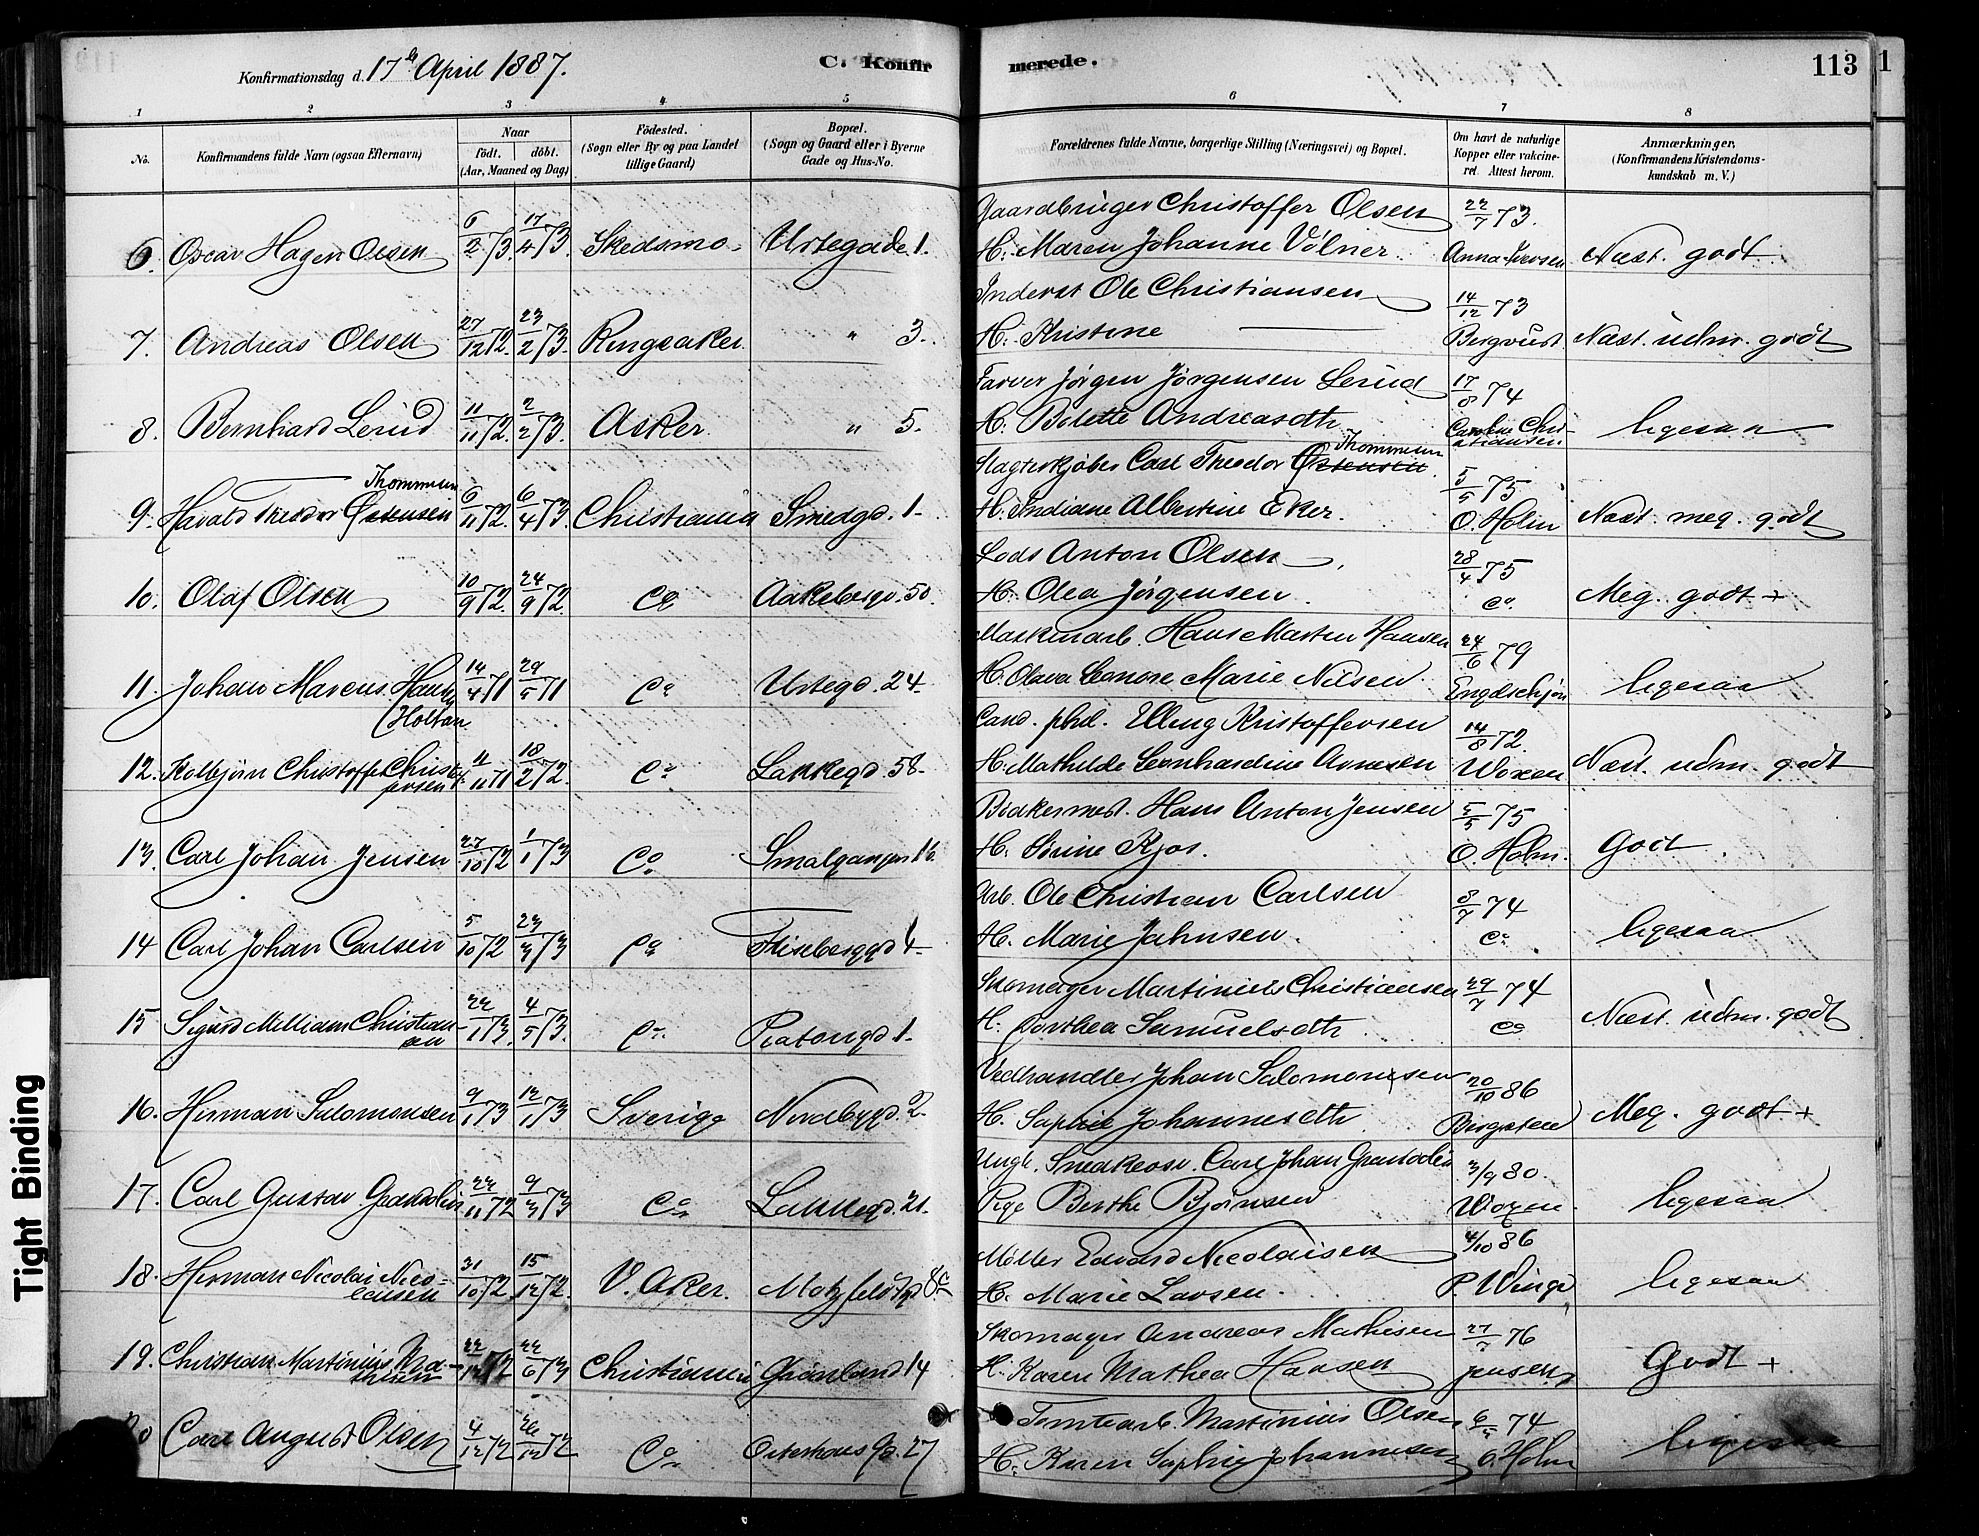 Konfirmationsdag d. 17de April 1887.
C. Konfir
merede.
113
1
1 2 3 4 5 6 7 8
No.
Konfirmandens fulde Navn (ogsaa Efternavn)
Naar
födt. döbt.
(Aar, Maaned og Dag)
Födested.
(Sogn eller By og paa Landet
tillige Gaard)
Bopæl.
(Sogn og Gaard eller i Byerne
Gade og Hus-No.
Forældrenes fulde Navne, borgerlige Stilling (Næringsvei) og Bopæl.
Om havt de naturlige
Kopper eller vakcine-
ret. Attest herom.
Anmærkninger,
(Konfirmandens Kristendoms-
kundskab m. V.)
Gaardbruger Christoffer Olsen 22/7 73.
6. Oscar Hagen Olsen 6/2 73. 17/4 73. Skedsmo. Urtegade 1. H. Maren Johanne Völner. Anna Iversen Næst. godt.
Inderst Ole Christiansen 14/12 73
7. Andreas Olsen 27/12 72. 23/2 73. Ringsaker. " 3. H. Kristine Bergvist Næst. udm. godt
Farver Jörgen Jörgensen Lerud 17/8 74
8. Bernhard Lerud 11/11 72. 2/2 73. Asker. " 5. H. Bolette Andreasdth. Caroline Chri-
stiansen ligesaa
Thommesen
Slagterkjøber Carl Theodor Østensen. 5/5 75
Thommesen
9. Harald Theodor Østensen 6/11 72. 6/4 73. Christiania Smedgd. 1. H. Indiane Albertine Eker. O. Holm Næst. meg. godt
Lods Anton Olsen 28/4 75
10. Olaf Olsen 10/9 72 24/9 72 Co Aakebergv. 50. H. Olea Jörgensen. Co. Meg. godt +
Maskinarb. Hans Martin Hansen 24/6 79
11. Johan Marcus Hansen 14/4 71 29/5 71 Co Urtegd. 24. H. Olava Leonore Marie Nilsen. Engelschjøn ligesaa
(Holtan
Cand. phil. Elling Kristoffersen 14/8 72.
12. Kolbjørn Christoffer Christoff-
ersen 11/11 71 18/2 72. Co Lakkegd. 58. H. Mathilde Leonhardine Arnesen Woxen Næst. udm. godt
Bödkermest. Hans Anton Jensen 5/5 75
13. Carl Johan Jensen 27/10 72 1/1 73 Co. Smalgangen 16 H. Sirine Kjos. O. Holm. Godt.
Arb. Ole Christian Carlsen 8/7 74
14 Carl Johan Carlsen 5/10 72 23/3 73 Co Friseberggd 4. H. Marie Jahnsen. Co ligesaa
Skomager Martinius Christiansen 29/7 74
15 Sigurd William Christian-
sen 22/1 73. 4/5 73. Co. Platougd 1. H. Dorthea Samuelsdth. Co Næst. udm. godt
Vedhandler Johan Salomonsen 20/10 86
16. Herman Salomonsen 9/1 73 12/1 73 Sverige Nordbygd 2. H. Sophie Johannesdth. Bergsten Meg. godt +
Ungk. Snedkersv. Carl Johan 3/9 80.
17. Carl Gustav 22/11 72 9/3 73 Co. Lakkegd. 21. Pige Berthe Bjørnsen Woxen. ligesaa
Møller Edvard Nicolaisen 4/10 86
18. Herman Nicolai Nico-
laisen 31/10 72. 15/12 72. V. Aker. Motzfeldtgd 8c H. Marie Larsen. P. Winge ligesaa
Skomager Andreas Mathisen 27/7 76
19. Christian Martinius Ma-
thisen 22/12 72 22/6 73 Christiania Grønland 14 H. Karen Mathea Hansen Jensen Godt +
Tomtearb. Martinius Olsen 74
Carl August Olsen 4/12 72 26/12 72 Co. Osterhaus Gd. 27 H. Karen Sophie Johannesen O. Holm ligesaa
Tight Binding